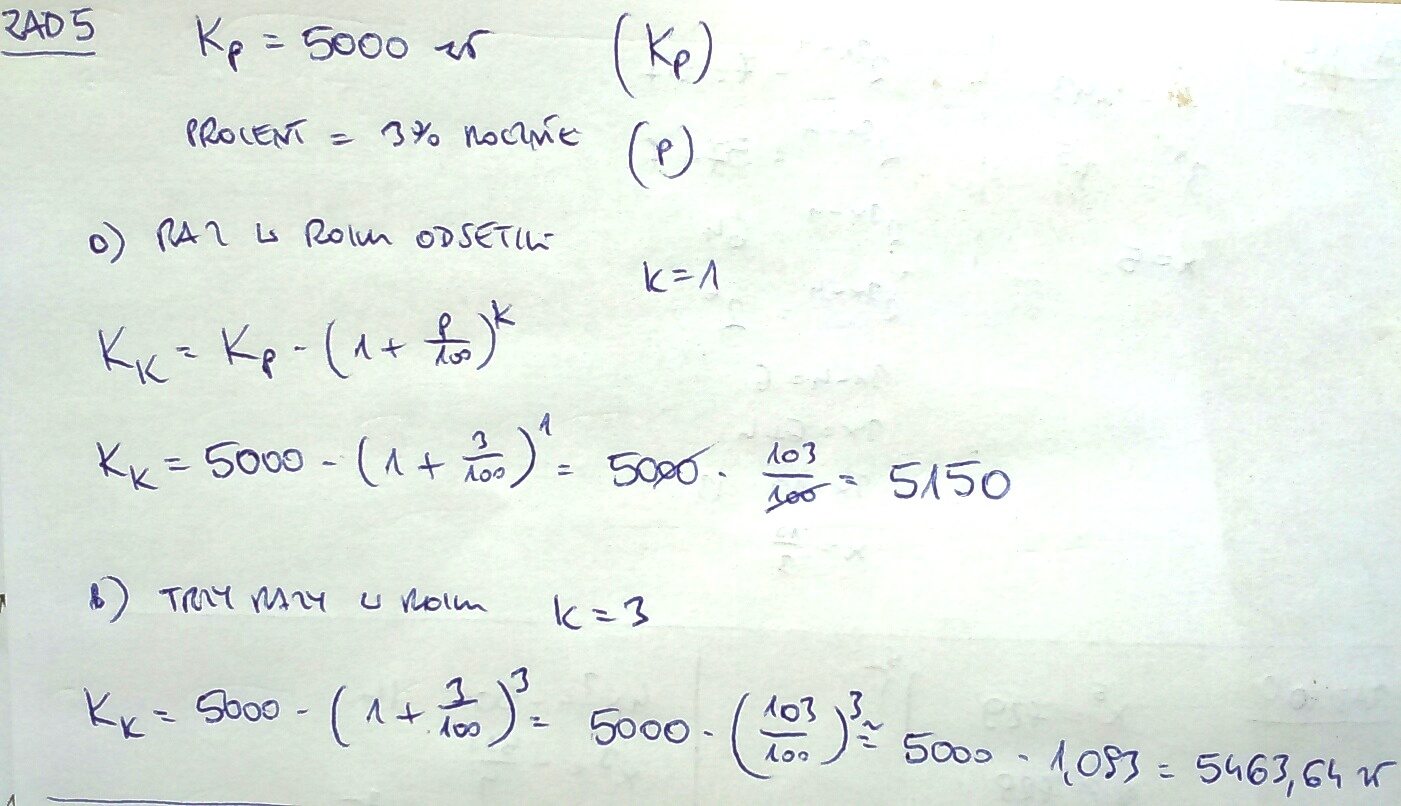 ZAD 5 Kp = 5000 zł (Kp)
PROCENT = 3% ROCZNIE (P)
a) RAZ W ROKU ODSETKI
k=1
K_K = Kp · (1 + p/100)^k
K_K = 5000 · (1 + 3/100)^1 = 5000 · 103/100 = 5150
b) TRZY RAZY W ROKU k=3
K_K = 5000 · (1 + 3/100)^3 = 5000 · (103/100)^3 ≈ 5000 · 1,093 = 5463,64 zł